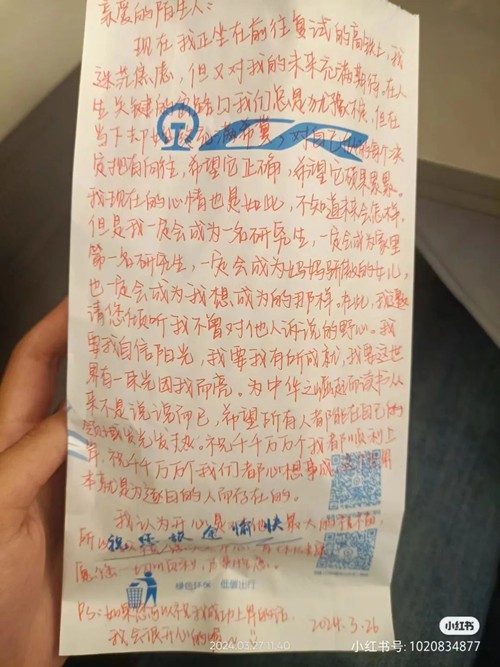 亲爱的陌生人:
现在我正坐在前往复试的高铁上,我
迷茫焦虑,但又对我的未来充满期待。在人
生关键的 口我们总是犹豫 ,但在
当下 充满希冀,对自己 的每个决
定抱有向往,希望它正确,希望它硕果累累。
我现在的心情也是如此,不知道未来会怎样,
但是我一定会成为一名研究生,一定会成为家里
第一名研究生,一定会成为妈妈骄傲的女儿,
也一定会成为我想成为的那样。在此,我邀
请您倾听我不曾对他人诉说的野心。我
要我自信阳光,我要我有所成就,我要这世
界有一束光因我而亮。为中华之崛起而读书从
来不是说说而已,希望所有人都能在自己的
领域发光发热。祝千千万万个我都顺利上
岸,祝千千万万个我们都心想事成,这个世界
本就是为 的人所存在的。
我认为开心是 最大的
所以
祝您旅途愉快
愿您一切
绿色环保 低碳出行
PS:如果您 我成功上岸的话
我会很开心的 2024.3.26
2024.03.27 11:40
小红书
小红书号: 1020834877